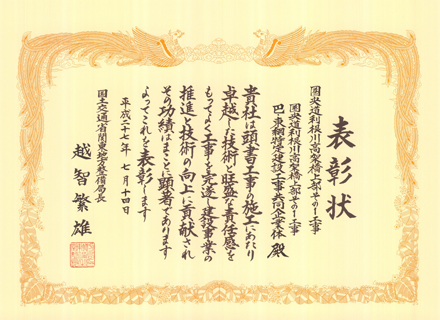 表彰状
圏央道利根川高架橋上部その1工事
圏央道利根川高架橋上部その1工事
巴・東綱特定建設工事共同企業体 殿
貴社は頭書工事の施工にあたり
卓越した技術と旺盛な責任感を
もってよく工事を完遂し建設事業の
推進と技術の向上に貢献され
その功績はまことに顕著であります
よってこれを表彰します
平成二十七年 七月十四日
国土交通省関東地方整備局長
越智繁雄